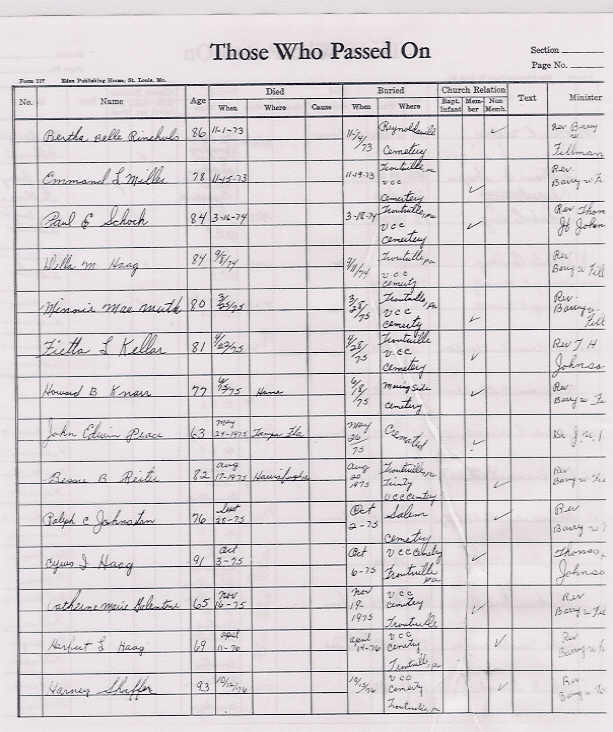 Those Who Passed On
Section
Page No.
Form 117 Eden Publishing House, St. Louis, Mo.
Died Buried Church Relation
No. Name Age When Where Cause When Where Bapt. Infant Member Non Memb. Text Minister
Bertha Belle 86 11-1-73 11/4/73 Reynoldsville Cemetery ✓ Rev Barry w Fillman
Emmand L Miller 78 11-15-73 11-19-73 Troutville, Pa UCC Cemetery ✓ Rev. Barry w
Paul E Schoch 84 3-16-74 3-18-74 Troutville, Pa UCC Cemetery ✓ Rev Thom
Willa M Haag 84 9/8/74 /11/74 Troutville Pa UCC Rev Barry w Fill
Minnie Mae 80 3/25/75 3/28/75 Troutville, Pa UCC ✓ Rev. Barry w Fill
Fietta L Keller 81 4/22/75 4/25/75 Troutville UCC Cemetery ✓ Rev T H Johnso
Howard B Knarr 77 6/15/75 Home 6/18/75 Morningside Cemetery ✓ Rev Barry w
John Edwin Peace 63 May 1975 Tampa Fla May 26 75 Cremated ✓
Bessie B Reiter 82 Aug 17-1975 Aug 20 1975 Troutville Pa Trinity UCC ✓ Rev Barry w
Ralph C Johnston 76 Sept 30-75 Oct 2-75 Salem Cemetry ✓ Rev Barry w
Cyrus I Haag 91 Oct 3-75 Oct 6-75 UCC Troutville Pa ✓ Thomas Johnso
Catherine Marie 65 Nov 16-75 Nov 19-1975 UCC Cemetery Troutville ✓ Rev Barry w
L Haag 69 April 11-76 April 14-76 UCC Cemetry Troutville, Pa ✓ Rev Barry w
Harvey Shaffer 93 10/12/76 10/15/76 UCC Cemetry Troutville, Pa ✓ Rev Barry w